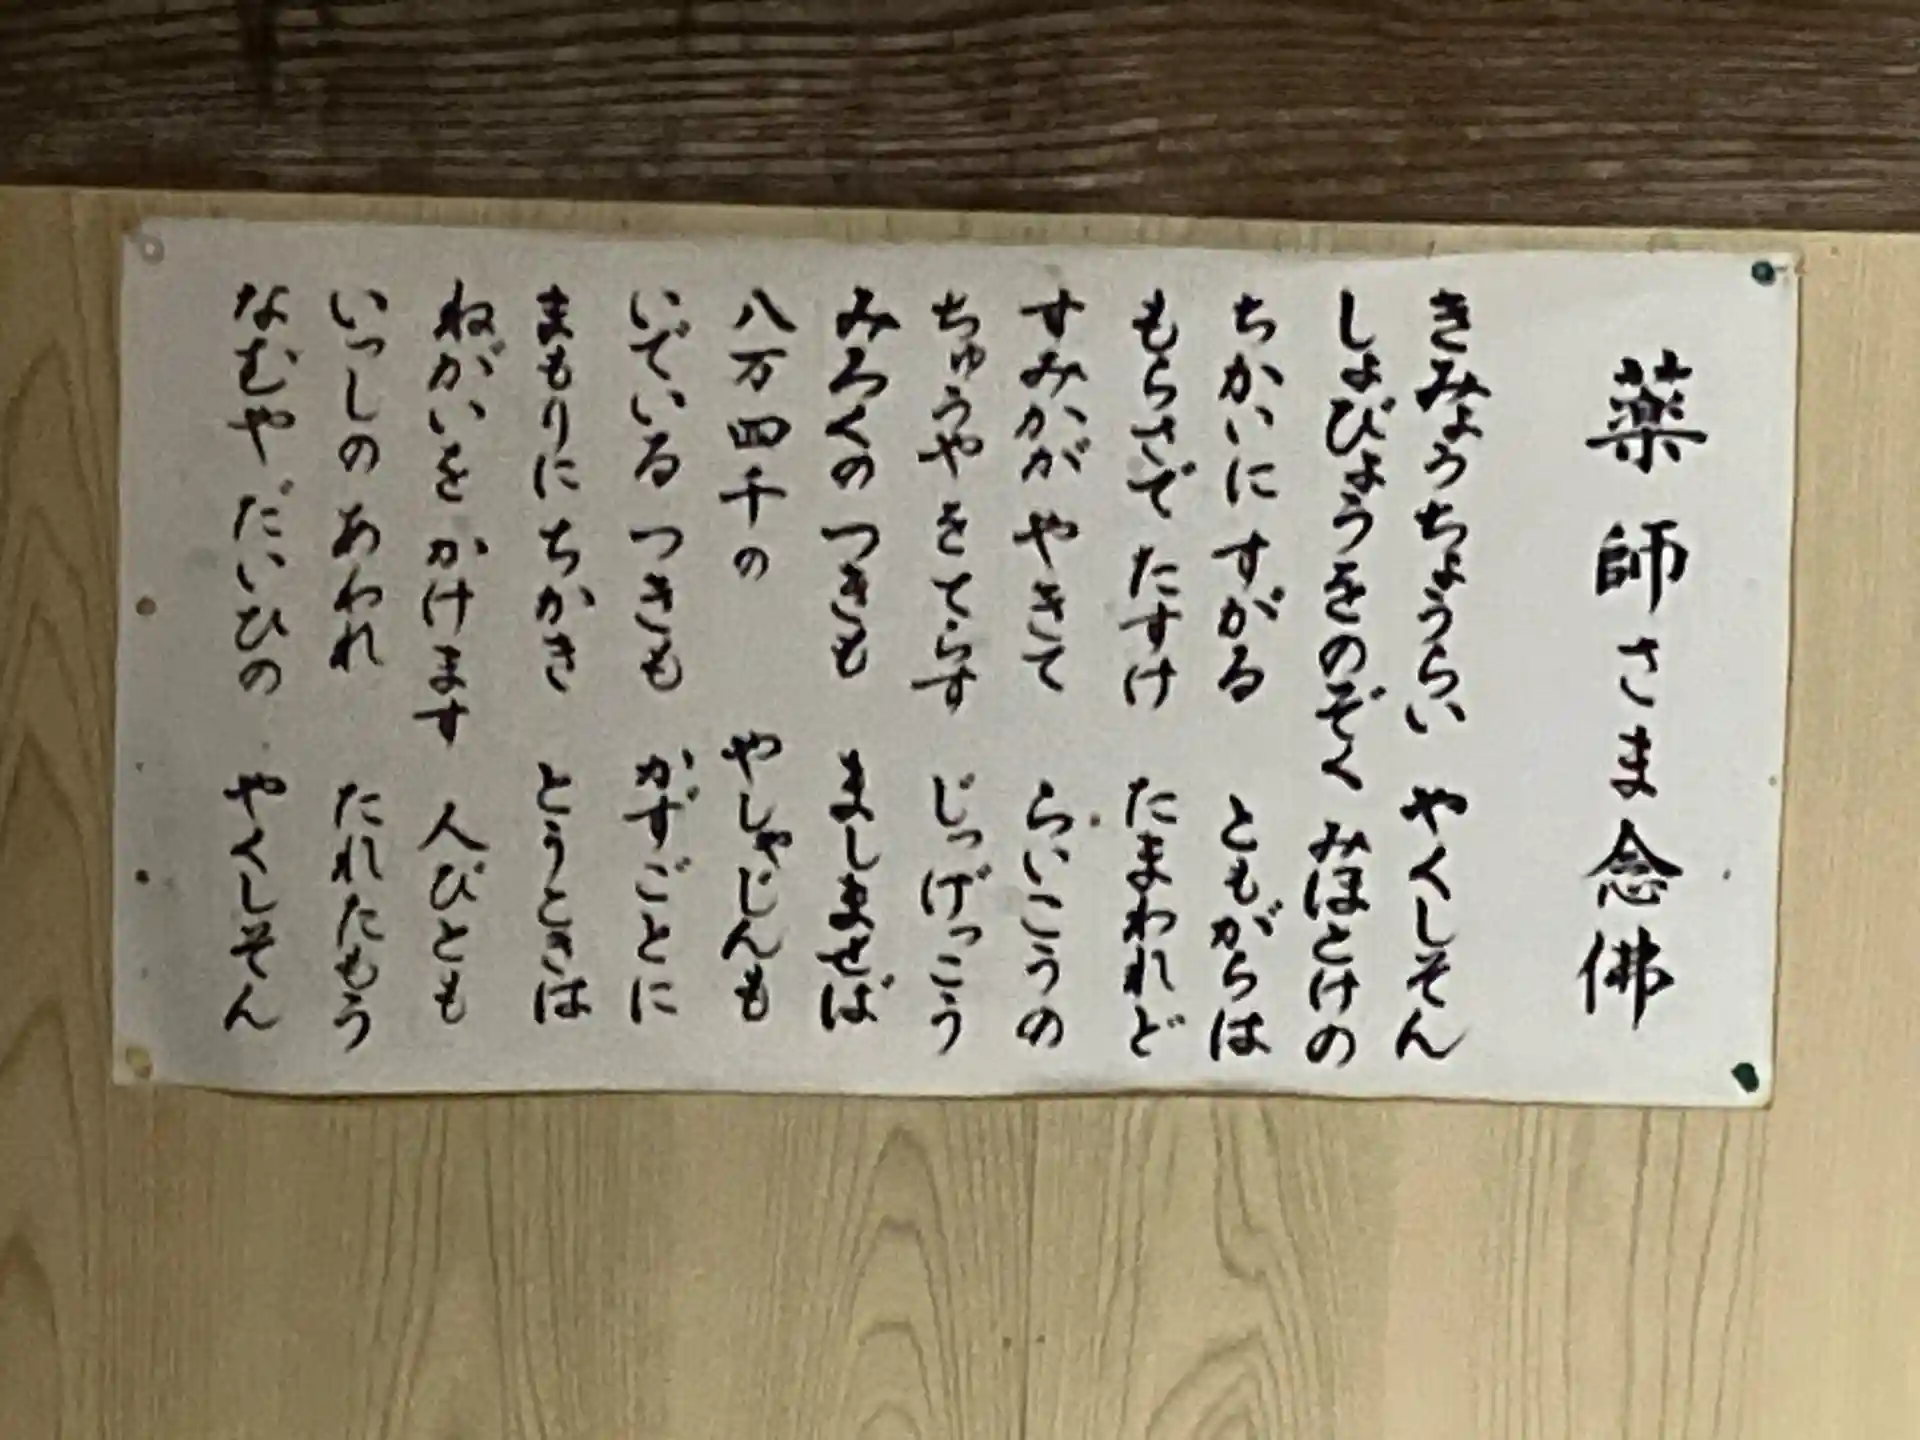 薬師さま念佛
きみょうちょうらい　やくしそん
しょびょうをのぞく　みほとけの
ちかいにすがる　ともがらは
もらさでたすけ　たまわれど
すみかがやきて　らいこうの
ちゅうやをてらす　じつげっこう
みろくのつきも　ましませば
八万四千の　やしゃじんも
いでいるつきも　かずごとに
まもりにちかき　とうときは
ねがいをかけます　人びとも
いっしのあわれ　たれたもう
なむやだいひの　やくしそん